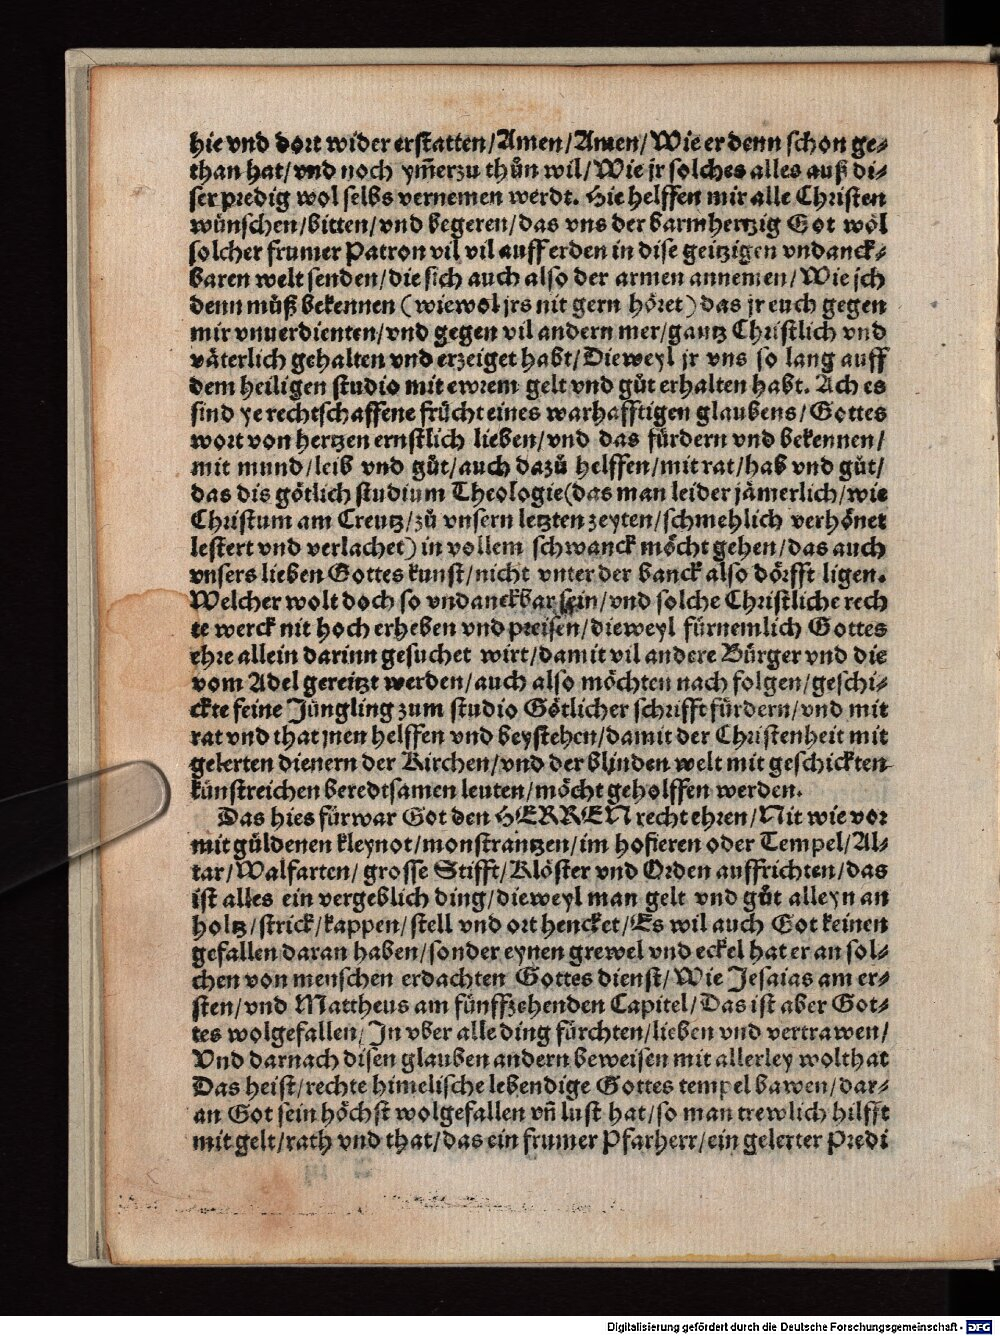 hie vnd dort wider erstatten/Amen/Amen/Wie er denn schon ge⸗
than hat/vnd noch ym̃erzu thůn wil/Wie jr solches alles auß di⸗
ser predig wol selbs vernemen werdt. Hie helffen mir alle Christen
wünschen/bitten/vnd begeren/das vns der barmhertzig Got wöl
solcher frumer Patron vil vil auff erden in dise geitzigen vndanck⸗
baren welt senden/die sich auch also der armen annemen/Wie jch
denn můß bekennen (wiewol jrs nit gern höret) das jr euch gegen
mir vnuerdienten/vnd gegen vil andern mer/gantz Christlich vnd
väterlich gehalten vnd erzeiget habt/Dieweyl jr vns so lang auff
dem heiligen studio mit ewrem gelt vnd gůt erhalten habt. Ach es
sind ye rechtschaffene frücht eines warhafftigen glaubens/Gottes
wort von hertzen ernstlich lieben/vnd das fürdern vnd bekennen/
mit mund/leib vnd gůt/auch dazů helffen/mit rat/hab vnd gůt/
das dis götlich studium Theologie(das man leider jämerlich/wie
Christum am Creutz/zů vnsern letzten zeyten/schmehlich verhönet
lestert vnd verlachet) in vollem schwanck möcht gehen/das auch
vnsers lieben Gottes kunst/nicht vnter der banck also dörfft ligen.
Welcher wolt doch so vndanckbar sein/vnd solche Christliche rech
te werck nit hoch erheben vnd preisen/dieweyl fürnemlich Gottes
ehre allein darinn gesuchet wirt/damit vil andere Bürger vnd die
vom Adel gereitzt werden/auch also möchten nach folgen/geschi⸗
ckte feine Jüngling zum studio Götlicher schrifft fürdern/vnd mit
rat vnd that jnen helffen vnd beystehen/damit der Christenheit mit
gelerten dienern der Kirchen/vnd der blinden welt mit geschickten
künstreichen beredtsamen leuten/möcht geholffen werden.
Das hies fürwar Got den HERREN recht ehren/Nit wie vor
mit güldenen kleynot/monstrantzen/im hofieren oder Tempel/Al⸗
tar/Walfarten/grosse Stifft/Klöster vnd Orden auffrichten/das
ist alles ein vergeblich ding/dieweyl man gelt vnd gůt alleyn an
holtz/strick/kappen/stell vnd ort hencket/Es wil auch Got keinen
gefallen daran haben/sonder eynen grewel vnd eckel hat er an sol⸗
chen von menschen erdachten Gottes dienst/Wie Jesaias am er⸗
sten/vnd Mattheus am fünffzehenden Capitel/Das ist aber Got⸗
tes wolgefallen/Jn vber alle ding fürchten/lieben vnd vertrawen/
Vnd darnach disen glauben andern beweisen mit allerley wolthat
Das heist/rechte himelische lebendige Gottes tempel bawen/dar⸗
an Got sein höchst wolgefallen vñ lust hat/so man trewlich hilfft
mit gelt/rath vnd that/das ein frumer Pfarherr/ein gelerter Predi
Digitalisierung gefördert durch die Deutsche Forschungsgemeinschaft - DFG